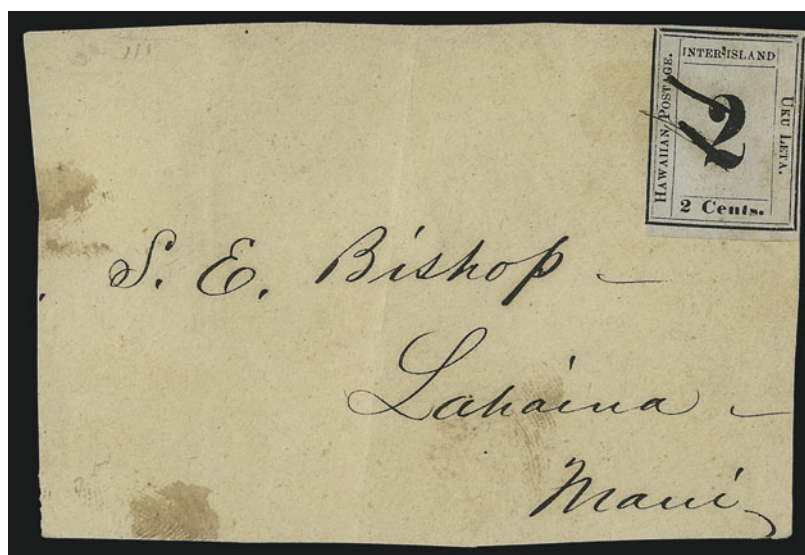 INTER-ISLAND
HAWAIIAN POSTAGE.
2
UKU LETA.
2 Cents.
S. E. Bishop –
Lahaina –
Maui